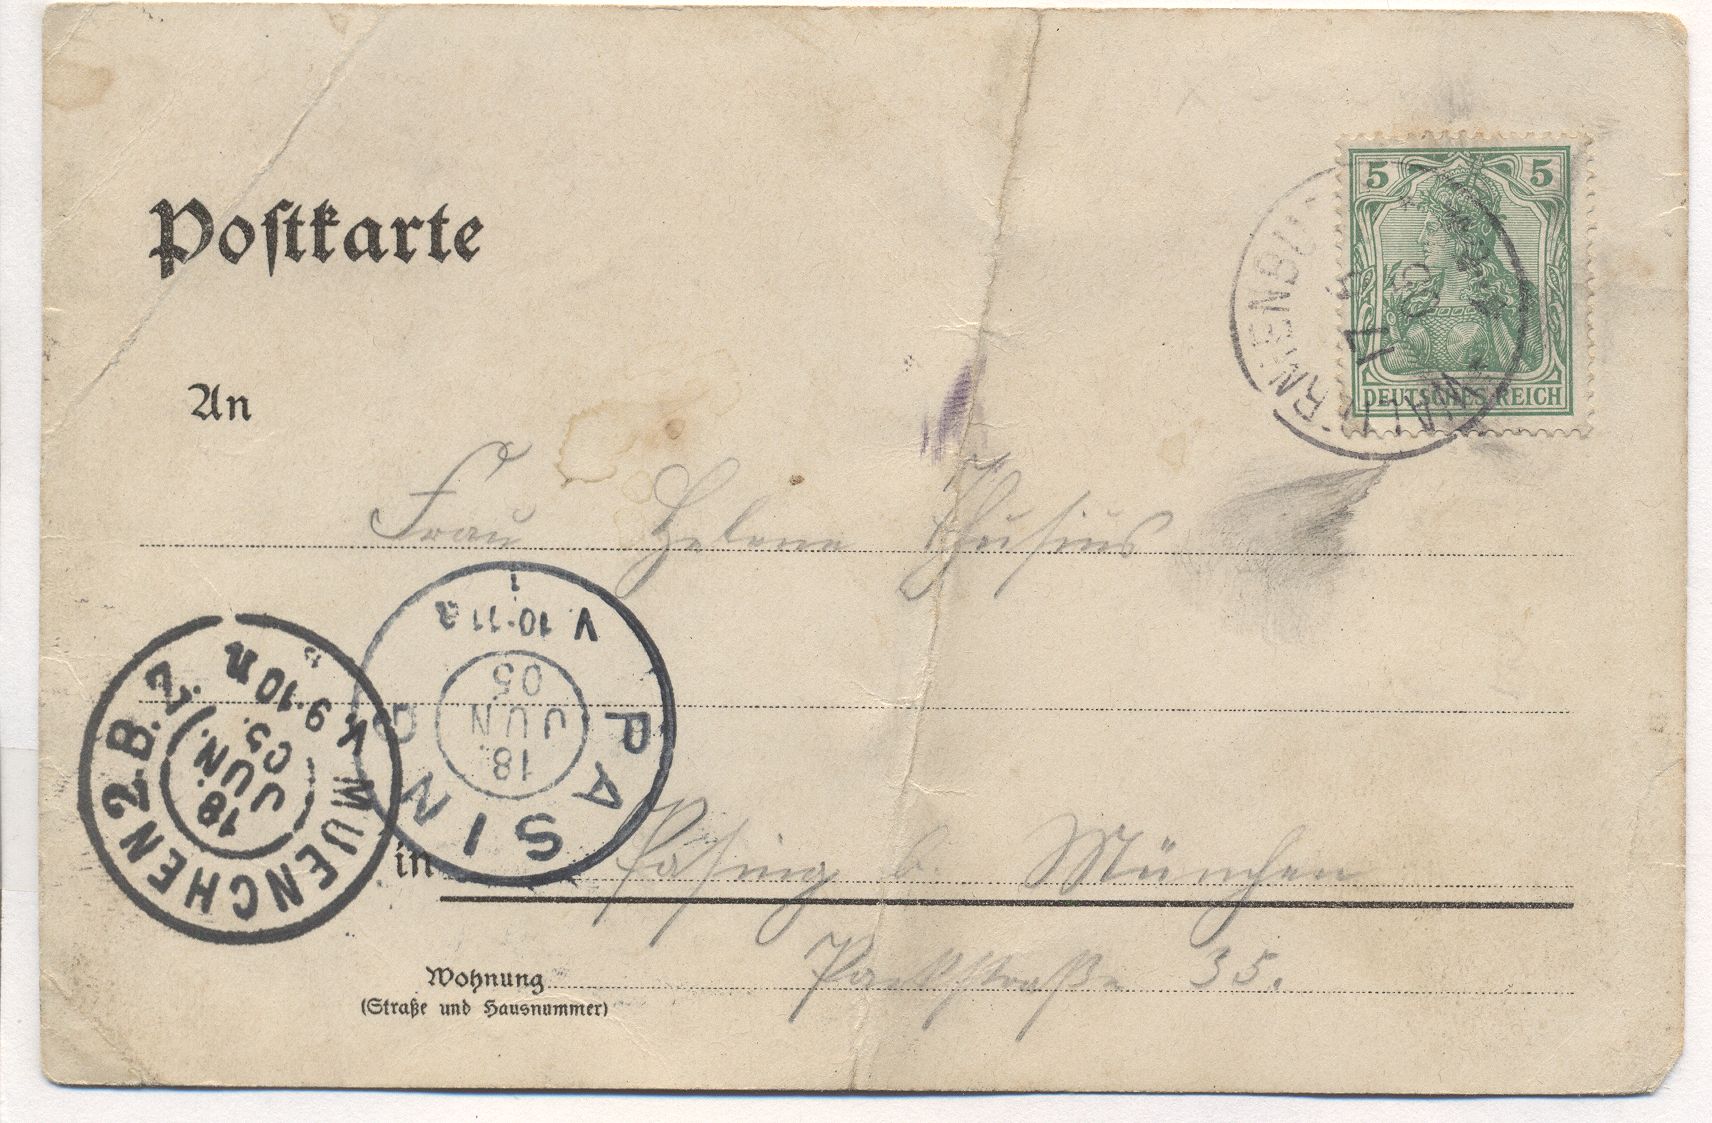 Postkarte
5 5
DEUTSCHES REICH
An
Frau Helene Thusius
V. 10-11 a
18.
JUN
05
PASING
MUENCHEN 2. B. Z.
18.
JUN.
05.
V. 9-10 n
in Pasing b. München
Wohnung Parkstraße 35.
(Straße und Hausnummer)